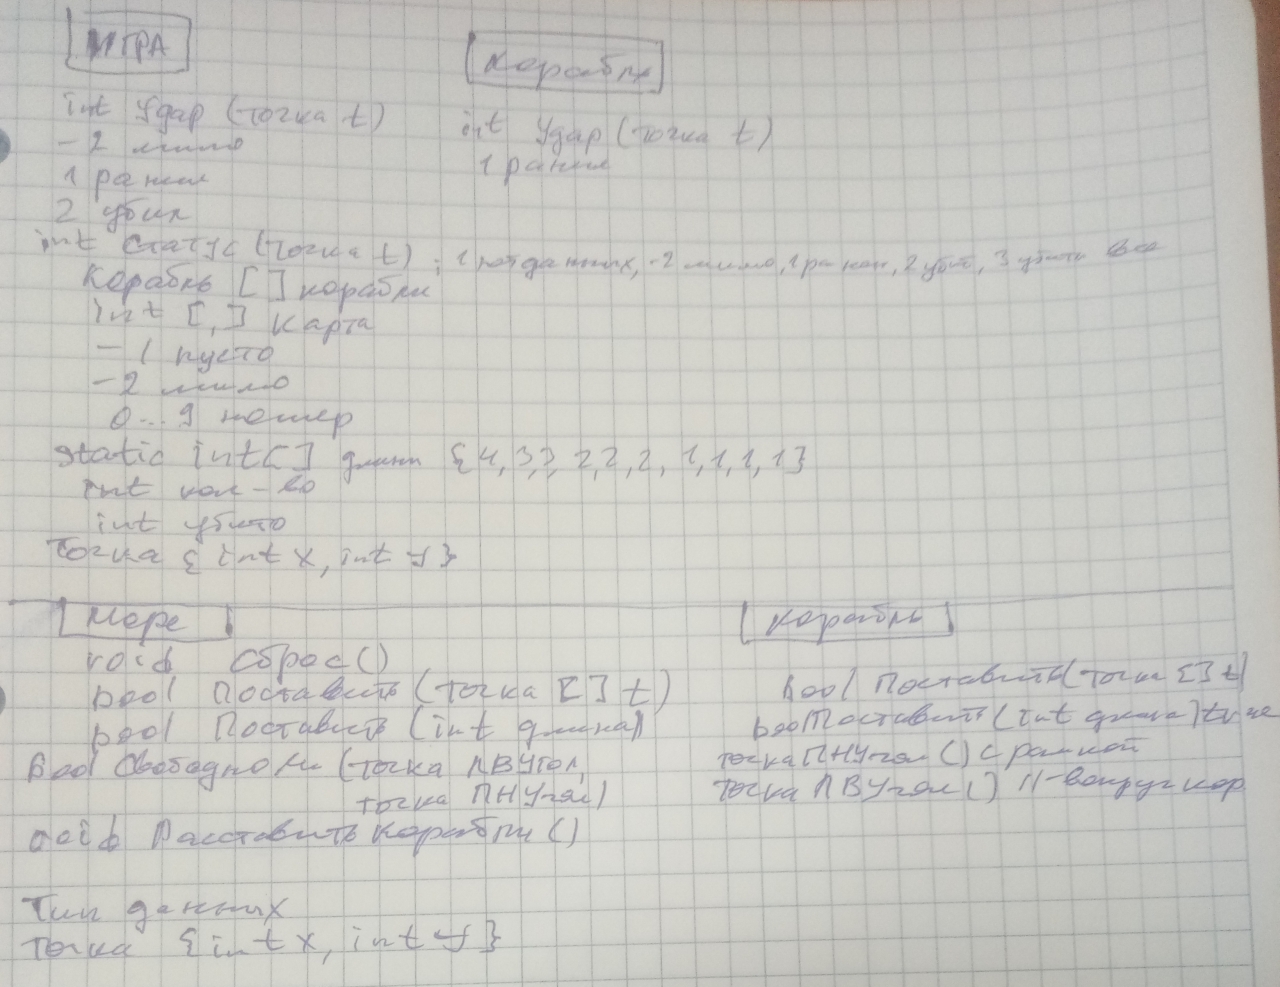 ИГРА
Корабль
int Удар (точка t)
-2 мимо
1 ранил
2 убил
int Удар (точка t)
1 ранил
int Статус (точка t) ; 1 нет данных, -2 мимо, 1 ранен, 2 убит, 3 убиты все
Корабль [ ] корабли
int [,] Карта
-1 пусто
-2 мимо
0...9 номер
static int[] длины {4,3,3,2,2,2,1,1,1,1}
int кол-во
int убито
Точка {int x, int y}
Море
void Сброс()
bool Поставить (точка [] t)
bool Поставить (int длина)
bool Свободно ли (точка ЛВУгол,
точка ПНУгол)
void Расставить Корабли ()
Корабль
bool Поставить (точка [] t)
bool Поставить (int длина) true
точка ПНУгол () с рамкой
точка ЛВУгол () //-вокруг кор
Тип данных
Точка {int x, int y}